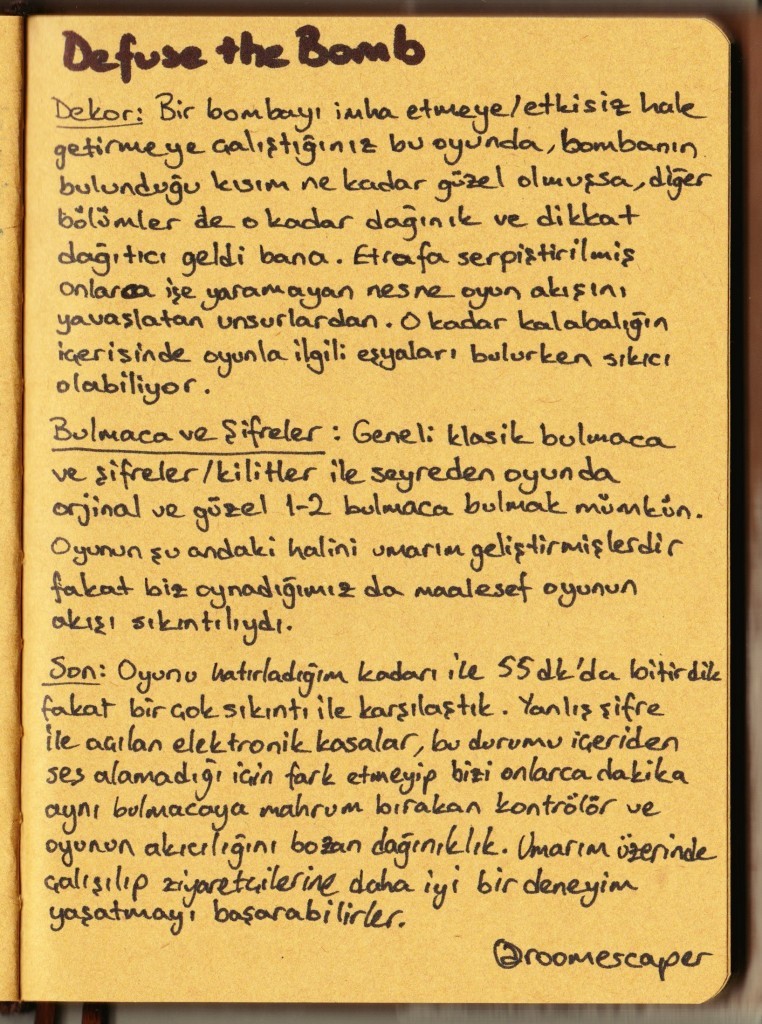 Defuse the Bomb
Dekor: Bir bombayı imha etmeye/etkisiz hale
getirmeye çalıştığınız bu oyunda, bombanın
bulunduğu kısım ne kadar güzel olmuşsa, diğer
bölümler de o kadar dağınık ve dikkat
dağıtıcı geldi bana. Etrafa serpiştirilmiş
onlarca işe yaramayan nesne oyun akışını
yavaşlatan unsurlardan. O kadar kalabalığın
içerisinde oyunla ilgili eşyaları bulurken sıkıcı
olabiliyor.
Bulmaca ve Şifreler: Geneli klasik bulmaca
ve şifreler/kilitler ile seyreden oyunda
orjinal ve güzel 1-2 bulmaca bulmak mümkün.
Oyunun şu andaki halini umarım geliştirmişlerdir
fakat biz oynadığımız da maalesef oyunun
akışı sıkıntılıydı.
Son: Oyunu hatırladığım kadarı ile 55 dk'da bitirdik
fakat bir çok sıkıntı ile karşılaştık. Yanlış şifre
ile açılan elektronik kasalar, bu durumu içeriden
ses alamadığı için fark etmeyip bizi onlarca dakika
aynı bulmacaya mahrum bırakan kontrölör ve
oyunun akıcılığını bozan dağınıklık. Umarım üzerinde
çalışılıp ziyaretçilerine daha iyi bir deneyim
yaşatmayı başarabilirler.
@roomescaper